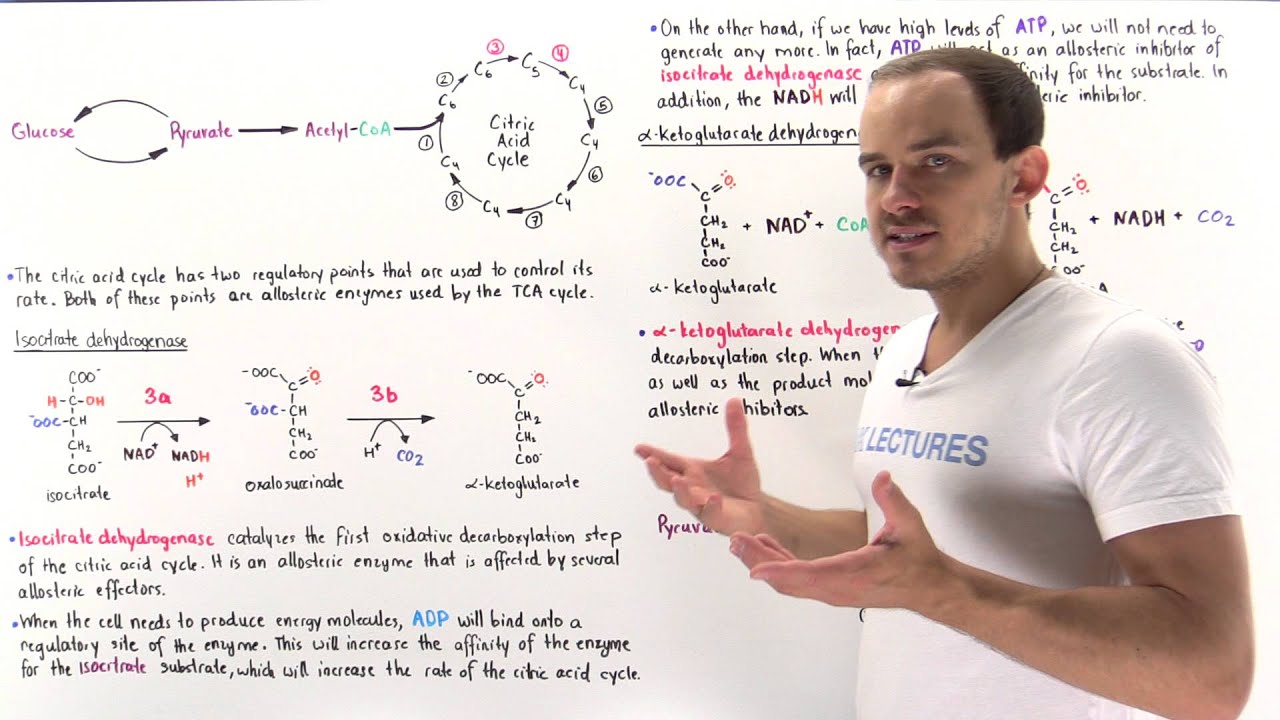 Glucose
Pyruvate
Acetyl-CoA
Citric
Acid
Cycle
C4
①
C6
②
C6
③
C5
④
C4
⑤
C4
⑥
C4
⑦
C4
⑧
• The citric acid cycle has two regulatory points that are used to control its
rate. Both of these points are allosteric enzymes used by the TCA cycle.
Isocitrate dehydrogenase
COO⁻
H-C-OH
⁻OOC-CH
CH₂
COO⁻
isocitrate
3a
NAD⁺
NADH
H⁺
⁻OOC
C
O
⁻OOC-CH
CH₂
COO⁻
oxalosuccinate
3b
H⁺
CO₂
⁻OOC
C
O
CH₂
CH₂
COO⁻
α-ketoglutarate
• Isocitrate dehydrogenase catalyzes the first oxidative decarboxylation step
of the citric acid cycle. It is an allosteric enzyme that is affected by several
allosteric effectors.
• When the cell needs to produce energy molecules, ADP will bind onto a
regulatory site of the enzyme. This will increase the affinity of the enzyme
for the isocitrate substrate, which will increase the rate of the citric acid cycle.
• On the other hand, if we have high levels of ATP, we will not need to
generate any more. In fact, ATP will act as an allosteric inhibitor of
isocitrate dehydrogenase for the substrate. In
addition, the NADH will inhibitor.
α-ketoglutarate dehydrogen
⁻OOC
C
O
CH₂
CH₂
COO⁻
+ NAD⁺ + CoA
α-ketoglutarate
C
O
CH₂
CH₂
+ NADH + CO₂
• α-ketoglutarate dehydrogen
decarboxylation step. When
as well as the product
allosteric inhibitors.
LECTURES